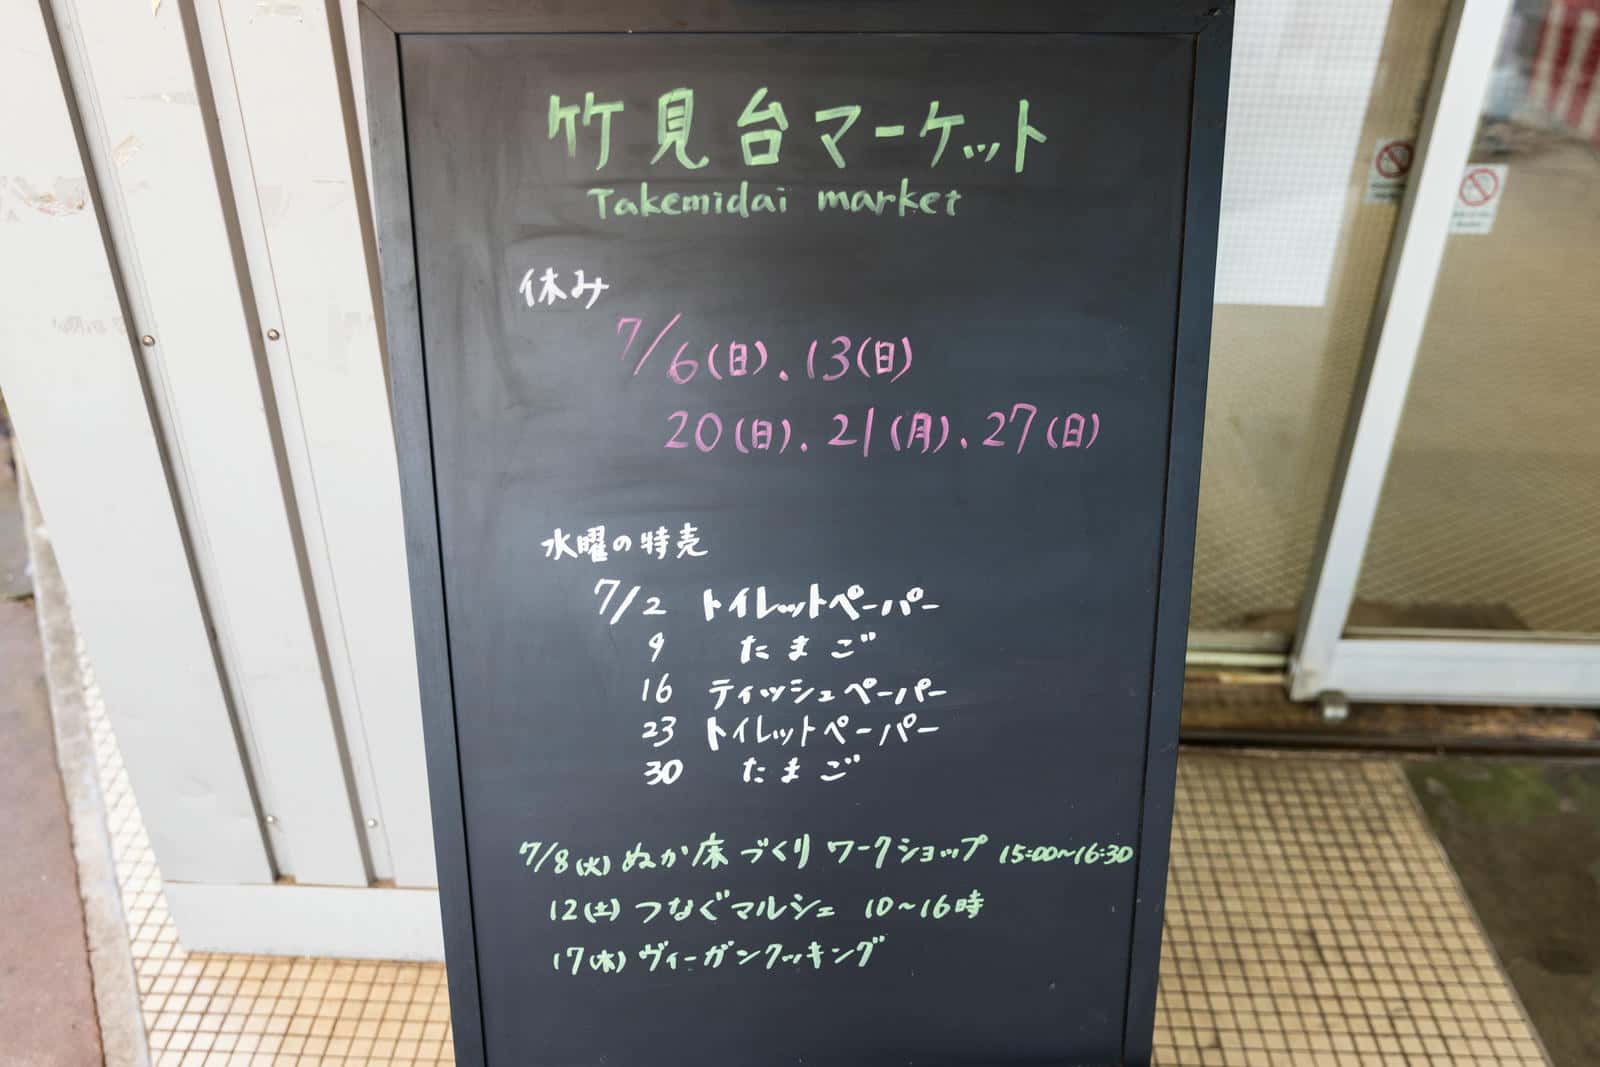 竹見台マーケット
Takemidai market
休み
7/6(日).13(日)
20(日).21(月).27(日)
水曜の特売
7/2 トイレットペーパー
9 たまご
16 ティッシュペーパー
23 トイレットペーパー
30 たまご
7/8(火)ぬか床づくりワークショップ 15:00~16:30
12(土)つなぐマルシェ 10~16時
17(木)ヴィーガンクッキング